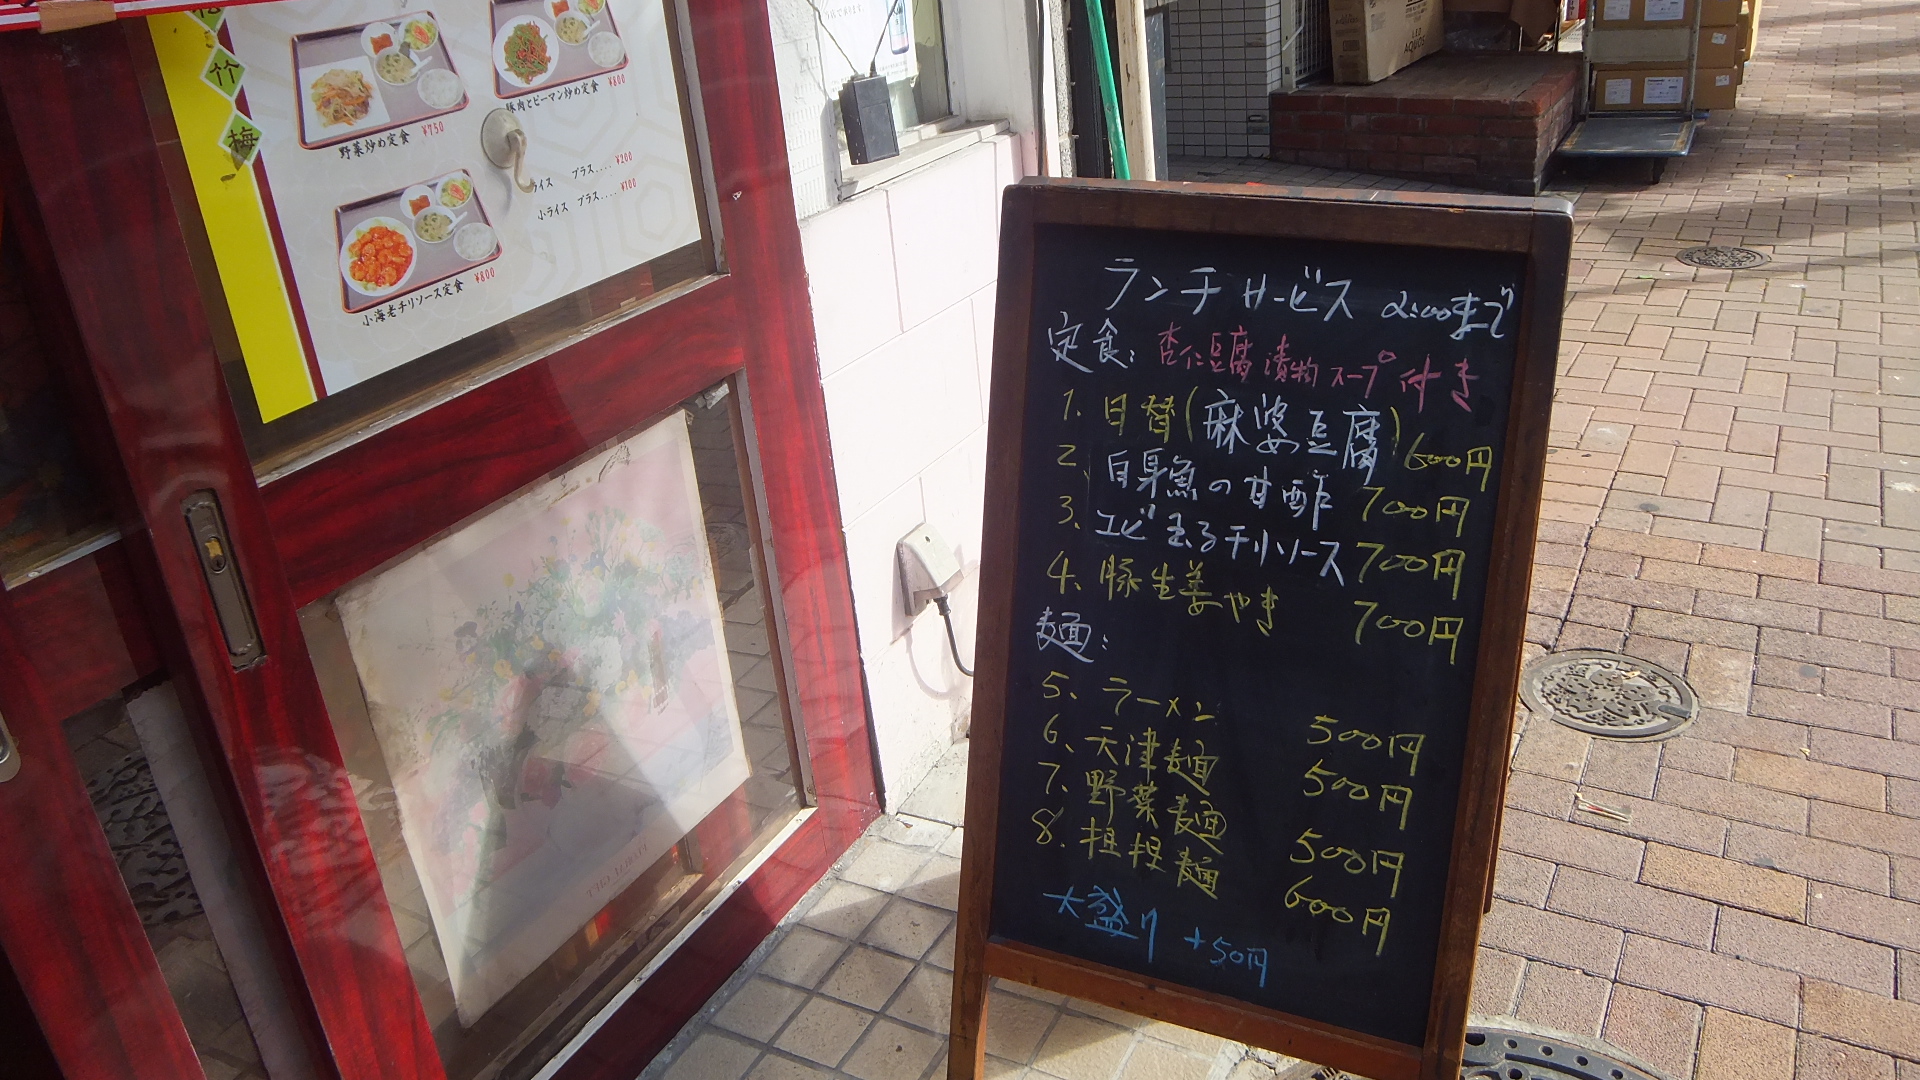 竹
梅
野菜炒め定食 ¥750
豚肉とピーマン炒め定食 ¥800
ライス プラス.... ¥200
小ライス プラス.... ¥100
小海老チリソース定食 ¥800
LED
AQUOS
ランチサービス 2:00まで
定食: 杏仁豆腐 漬物 スープ 付き
1. 日替(麻婆豆腐) 600円
2、白身魚の甘酢 700円
3、エビ玉子チリソース 700円
4. 豚生姜やき 700円
麺:
5、ラーメン 500円
6、天津麺 500円
7. 野菜麺 500円
8. 担担麺 600円
大盛り +50円